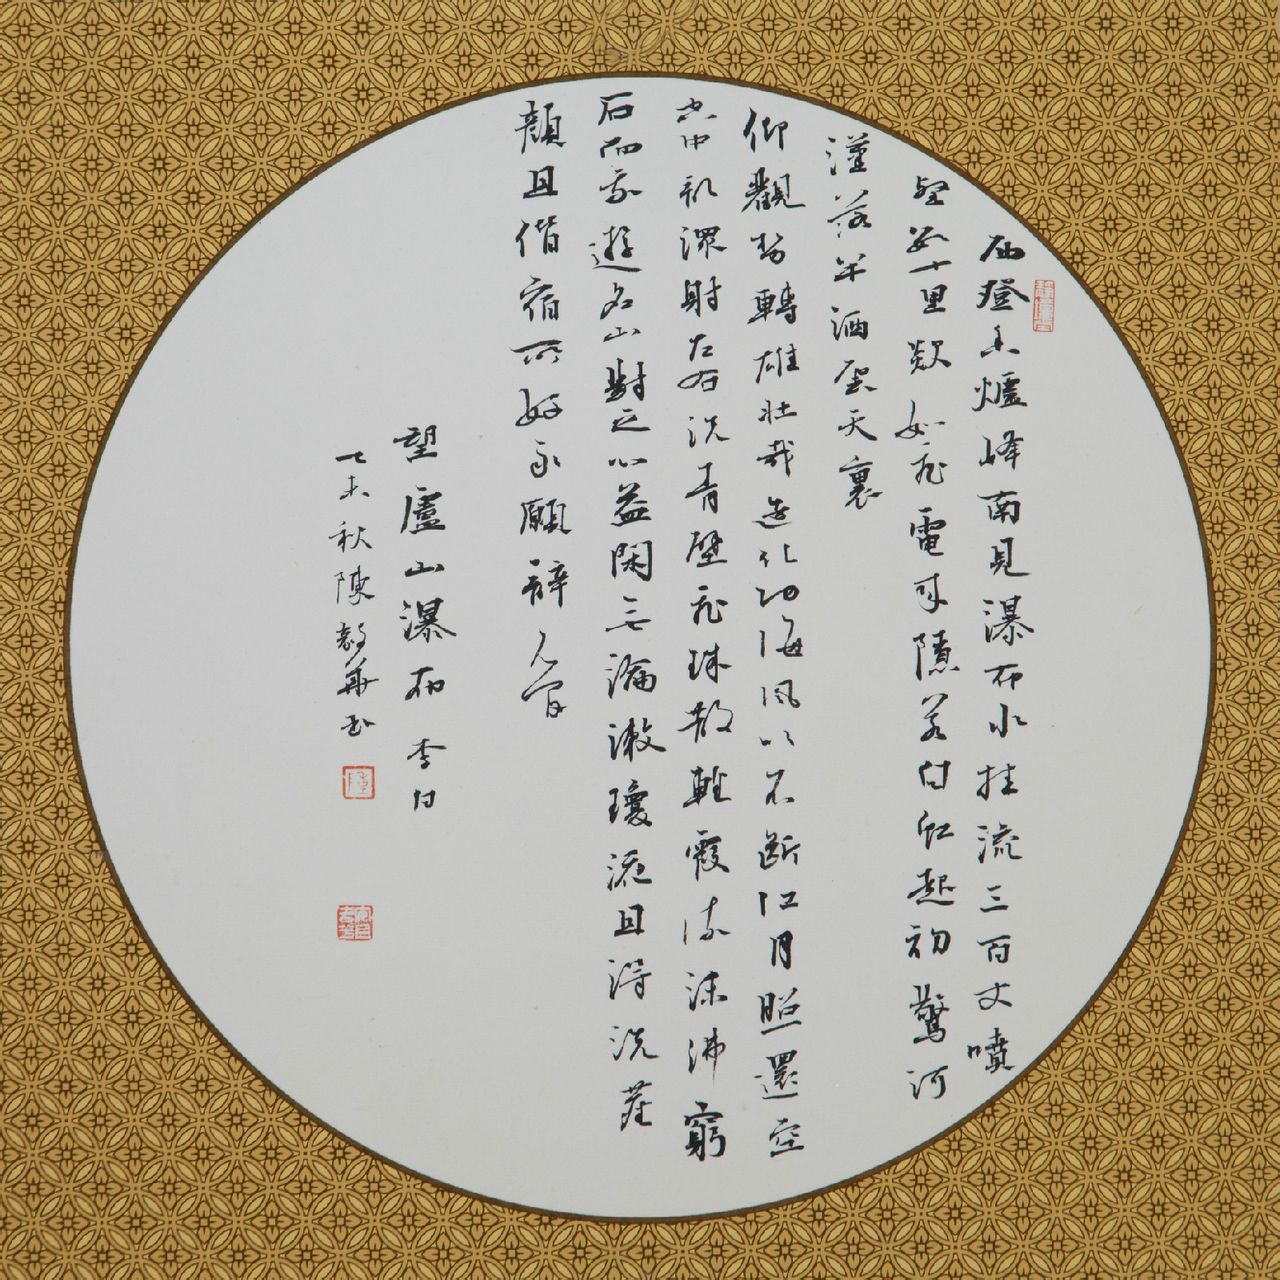 西登香爐峰南見瀑布水挂流三百丈噴
壑數十里欻如飛電來隱若白虹起初驚河
漢落半洒雲天裏
仰觀勢轉雄壯哉造化功海風吹不斷江月照還空
空中亂潈射左右洗青壁飛珠散輕霞流沫沸穹
石而我遊名山對之心益閑無論漱瓊液且得洗塵
顏且偕宿所好永願辭人間
望廬山瀑布 李白
乙未秋陳 華書